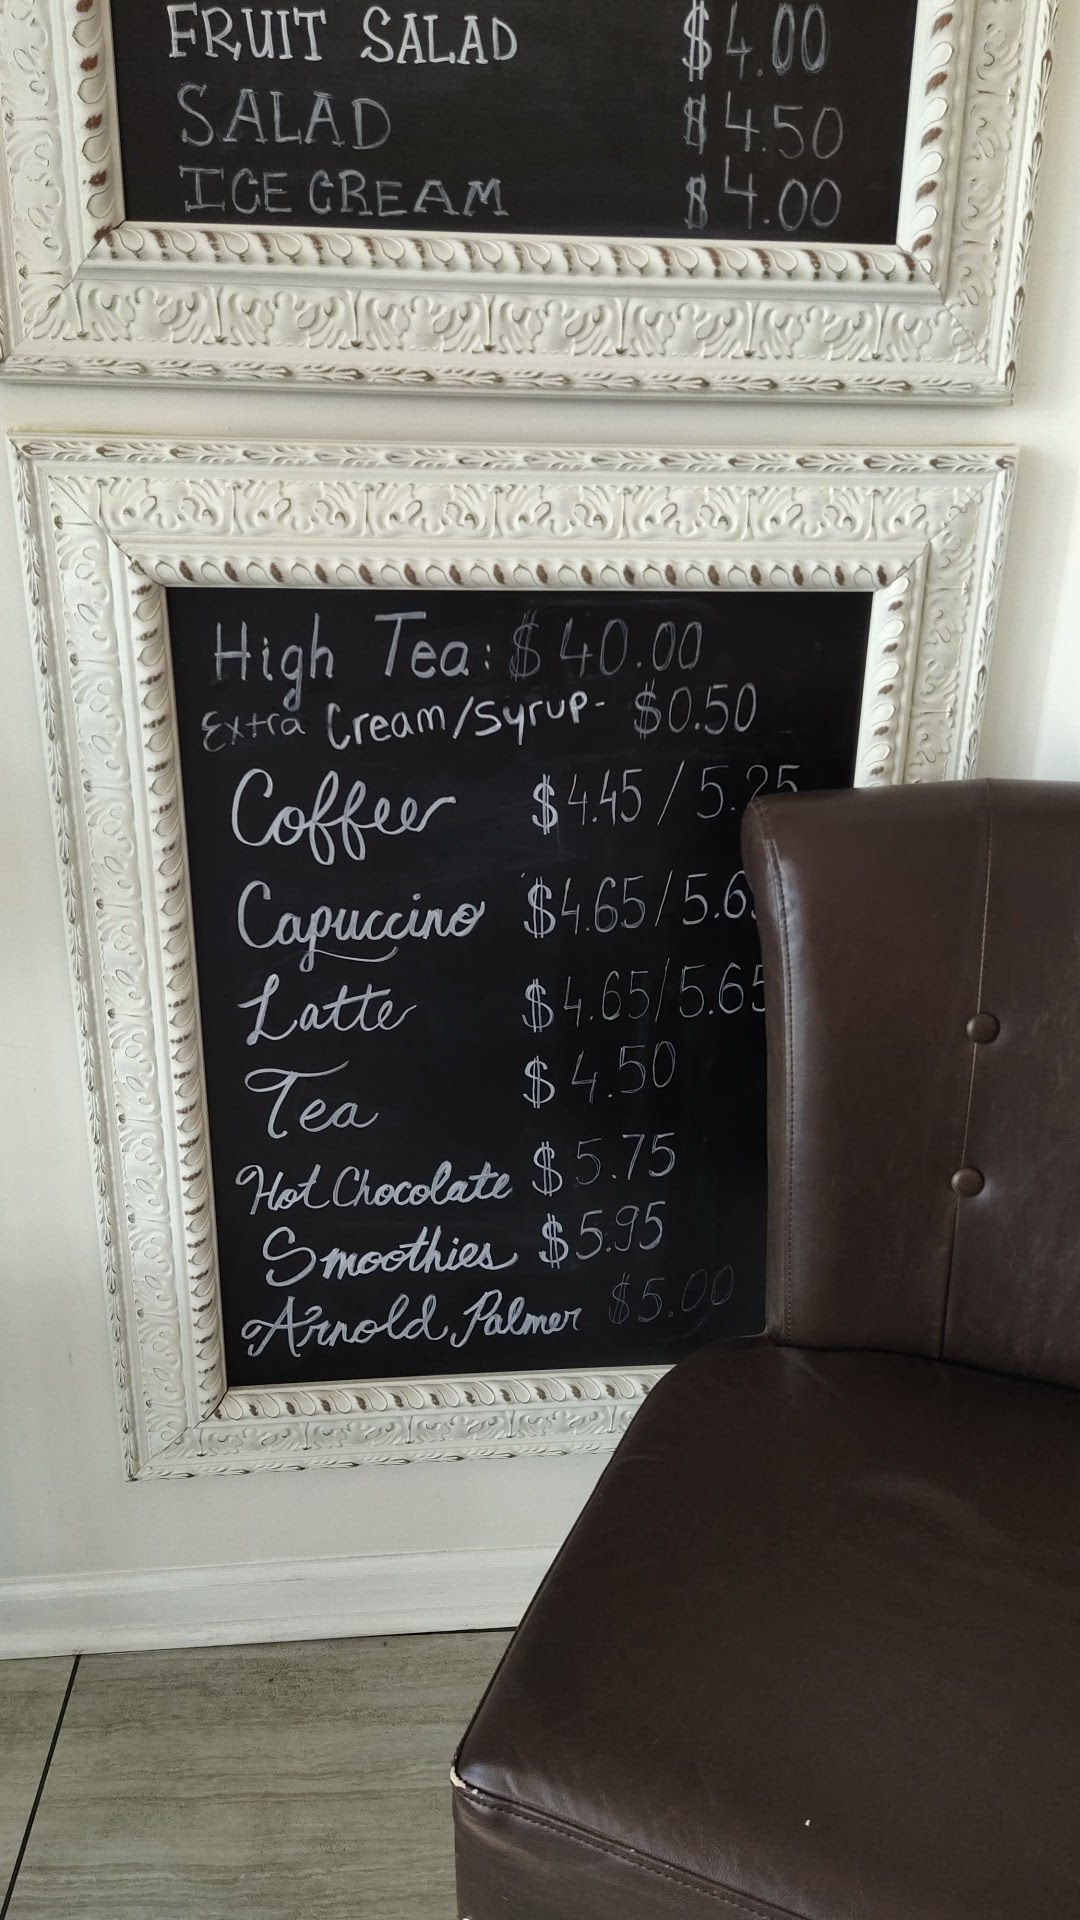 FRUIT SALAD $4.00
SALAD $4.50
ICE CREAM $4.00
High Tea: $40.00
Extra Cream/Syrup- $0.50
Coffee $4.45 / 5.25
Capuccino $4.65/5.6
Latte $4.65/5.65
Tea $4.50
Hot Chocolate $5.75
Smoothies $5.95
Arnold Palmer $5.00